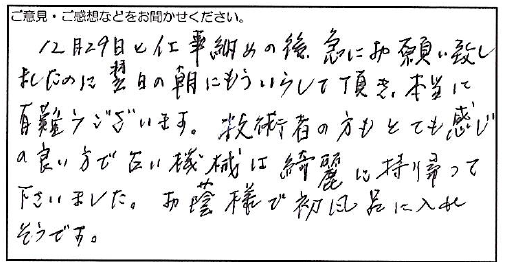 ご意見・ご感想などをお聞かせください。
12月29日と仕事納めの後、急にお願い致し
ましたのに翌日の朝にもういらして頂き、本当に
有難うございます。技術者の方もとても感じ
の良い方で古い機械は綺麗に持り帰って
下さいました。お蔭様で初風呂に入れ
そうです。